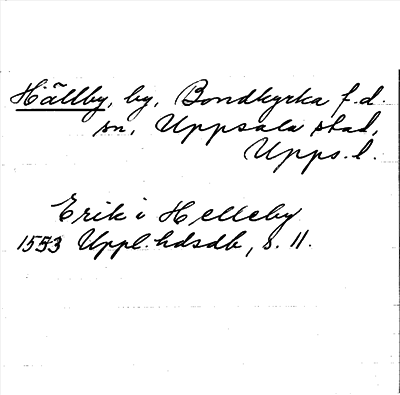 Hällby, by, Bondkyrka f.d.
sn, Uppsala stad,
Upps.l.
Erik i Helleby
1553 Uppl.hdsdb, s. 11.